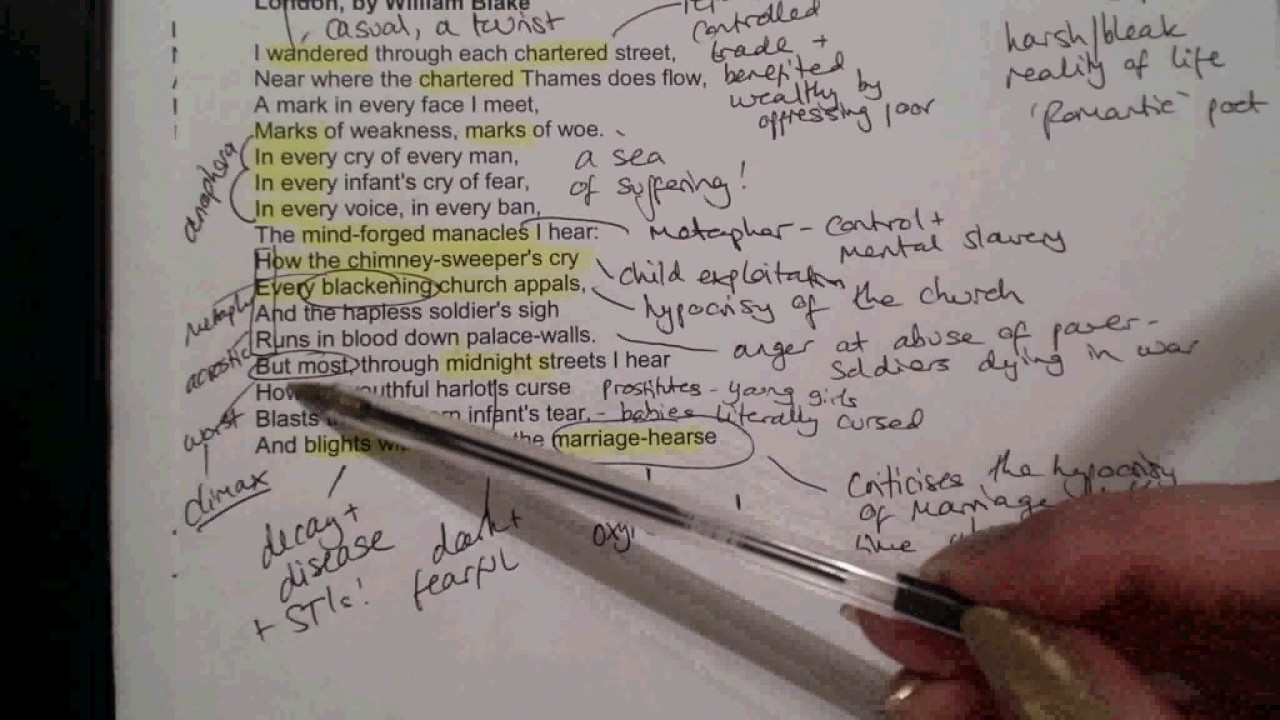 London, by William Blake
casual, a twist
I wandered through each chartered street,
Near where the chartered Thames does flow,
A mark in every face I meet,
Marks of weakness, marks of woe.
In every cry of every man,
In every infant's cry of fear,
In every voice, in every ban,
The mind-forged manacles I hear:
How the chimney-sweeper's cry
Every blackening church appals,
And the hapless soldier's sigh
Runs in blood down palace-walls.
But most, through midnight streets I hear
How youthful harlot's curse
Blasts infant's tear,
And blights the marriage-hearse
controlled
trade +
benefited
wealthy by
oppressing poor
harsh/bleak
reality of life
'Romantic' poet
anaphora
a sea
of suffering!
Metaphor - control +
mental slavery
child exploitation
hypocrisy of the church
metaphor
acrostic
anger at abuse of power -
soldiers dying in war
Prostitutes - young girls
- babies literally cursed
worst
climax
decay +
disease
+ STIs!
dark +
fearful
oxy
Criticises the hypocrisy
of marriage